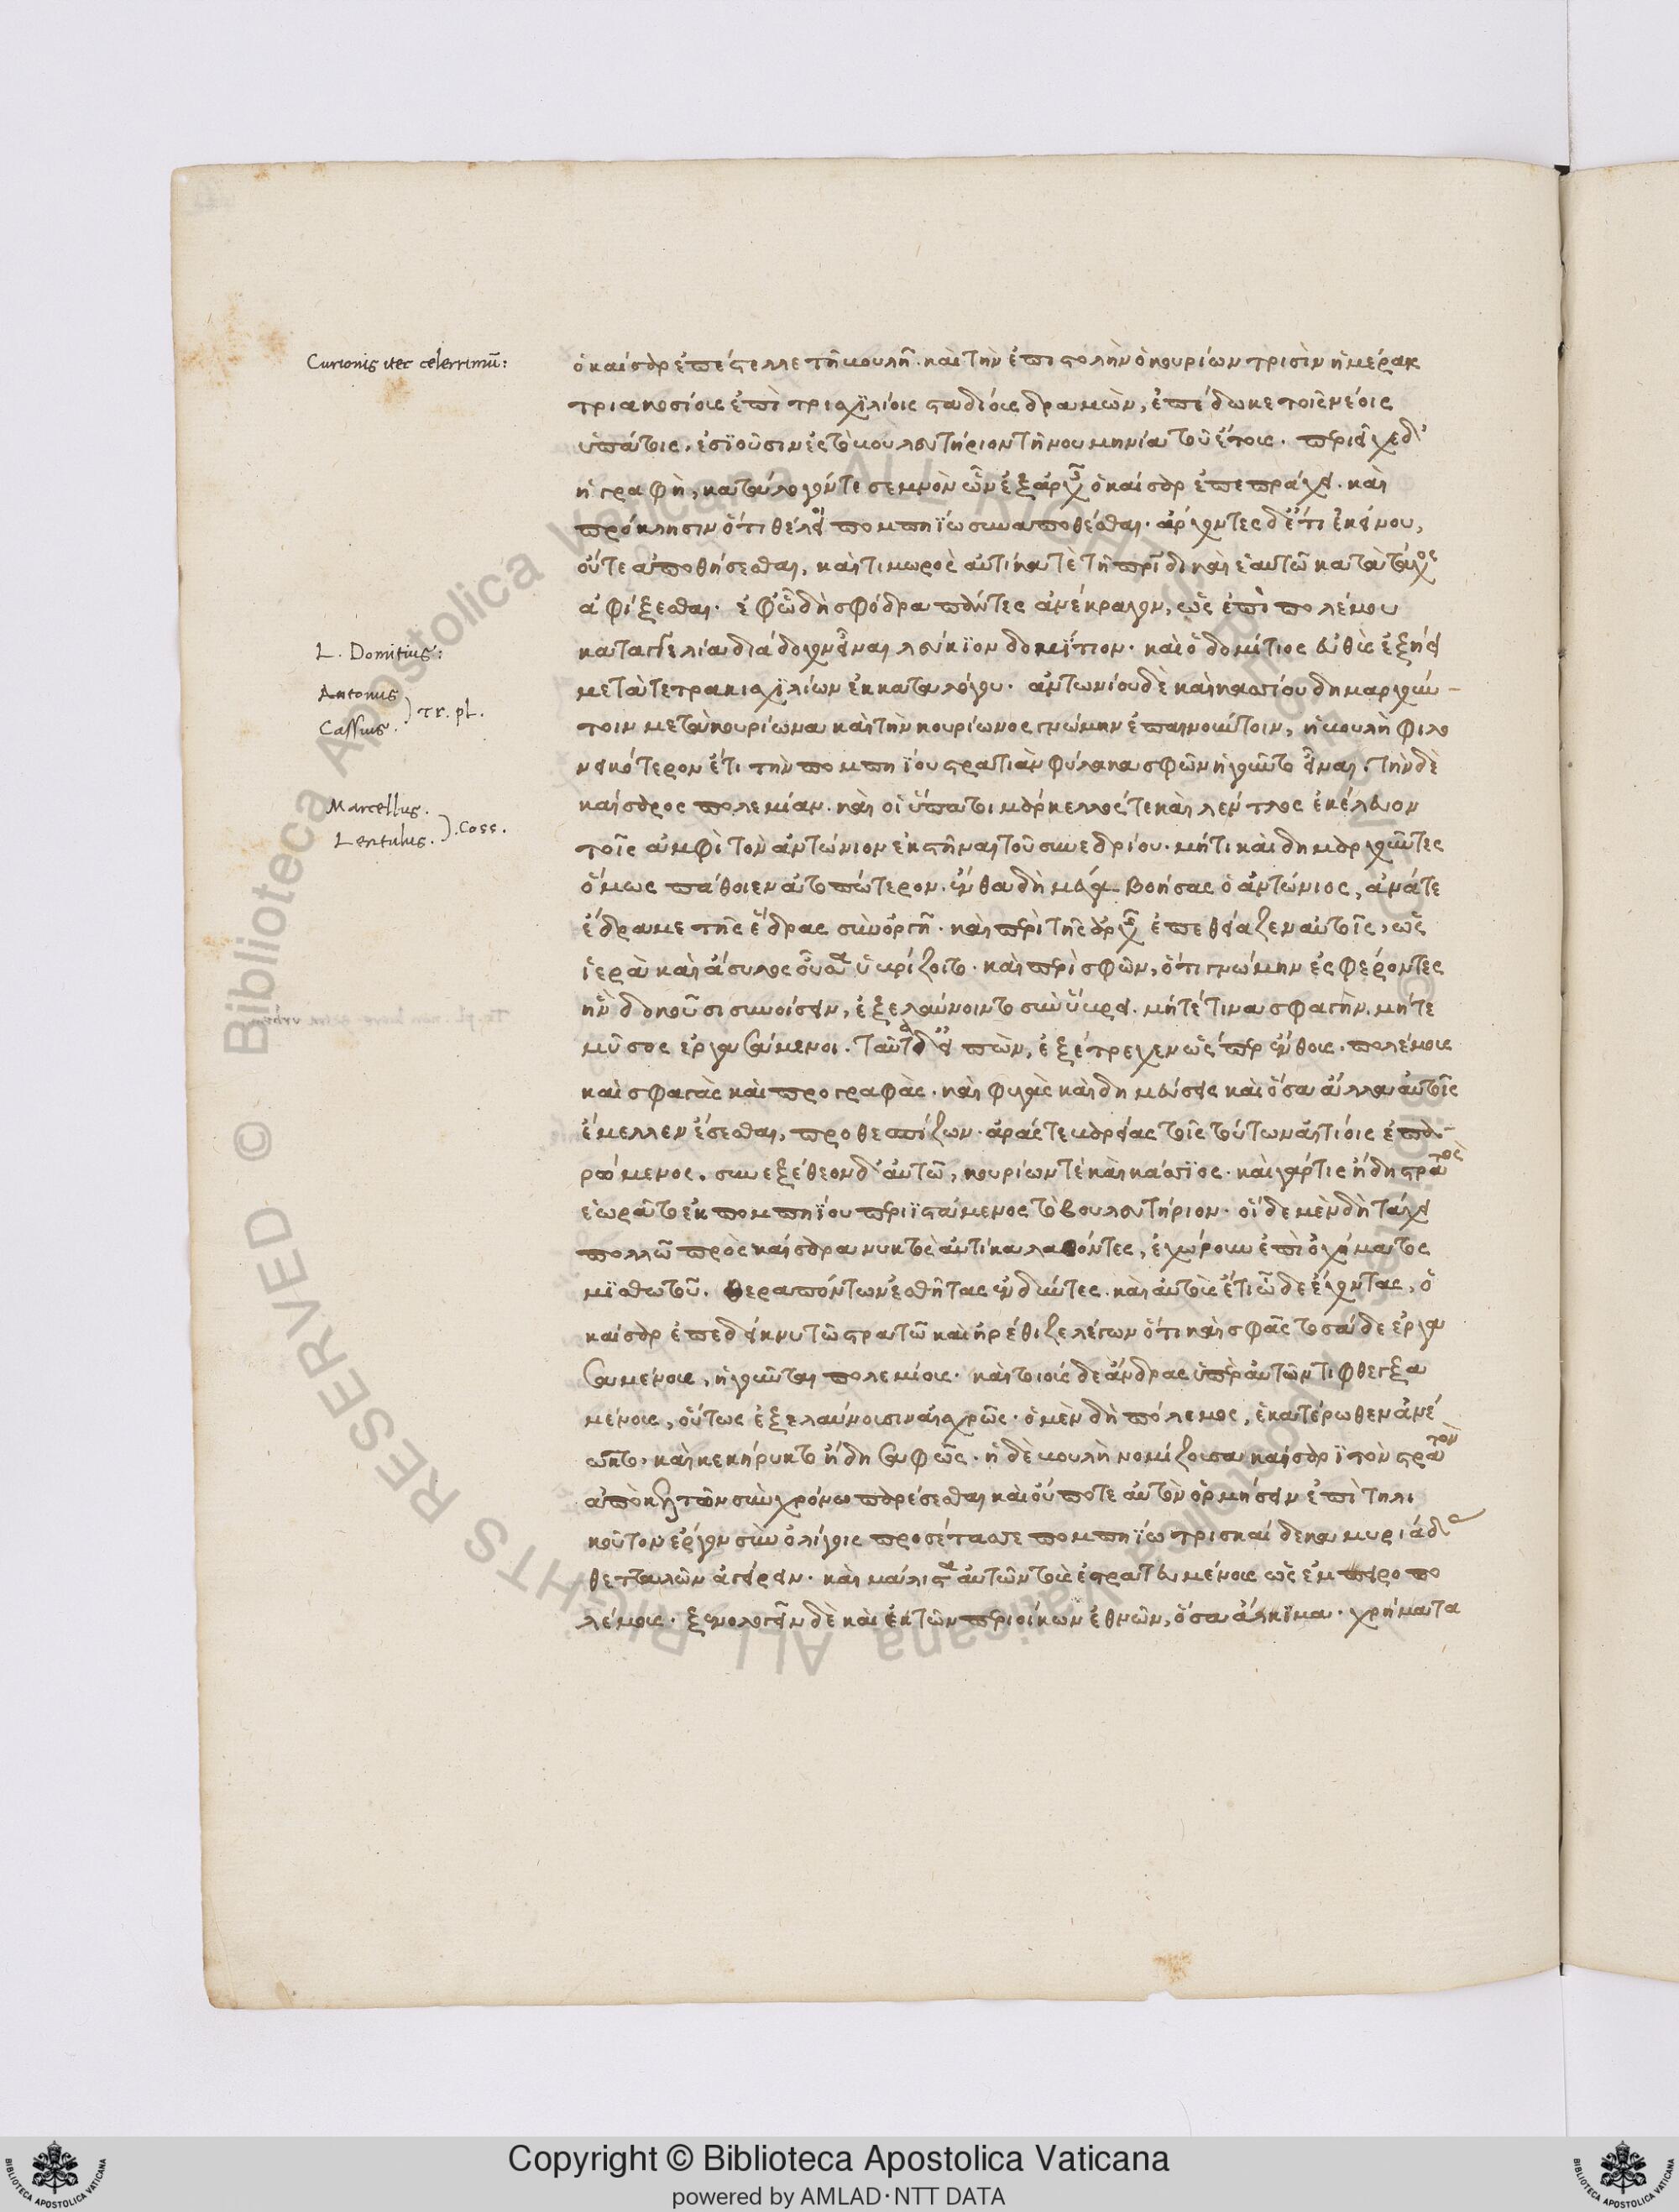 Curionis iter celerrimũ:
ὁ καίσαρ ἐπέστελλε τῆ βουλῆ. καὶ τὴν ἐπιστολὴν ὁ κουρίων τρισὶν ἡμέραις
τριακοσίοις ἐπὶ τρισχιλίοις σταδίοις δραμὼν, ἐπέδωκε τοῖς νέοις
ὑπάτοις, ἐσϊοῦσιν ἐς τὸ βουλευτήριον τῆ νουμηνία τοῦ ἔτους. περιεῖχε δ'
ἡ γραφὴ, κατάλογόν τε σεμνὸν ὧν ἐξ ἀρχῆς ὁ καίσαρ ἐπεπράχει. καὶ
πρόκλησιν ὅτι θέλει πομπηΐω συναποθέσθαι. ἄρχοντες δ' ἔτι ἐκείνου,
οὔτε ἀποθήσεσθαι, καὶ τιμωρὸς αὐτίκα τὲ τῆ πατρίδι καὶ ἑαυτῶ κατὰ τάχος
ἀφίξεσθαι. ἐφ' ὧ δὴ σφόδρα πάντες ἀνέκραγον, ὡς ἐπὶ πολέμου
L. Domitius:
καταγγελία διάδοχον εἶναι λεύκϊον δομίτιον. καὶ ὁ δομίτιος εὐθὺς ἐξήει
Antonius
Cassius. ) tr. pl.
μετὰ τετρακισχϊλίων ἐκ καταλόγου. ἀντωνίου δὲ καὶ κασσίου δημαρχούν-
τοιν μετὰ κουρίωνα καὶ τὴν κουρίωνος γνώμην ἐπαινούντοιν, ἡ βουλὴ φιλο
νεικότερον ἔτι τὴν πομπηΐου στρατιὰν φύλακα σφῶν ἡγοῦντο εἶναι. τὴν δὲ
Marcellus.
Lentulus. ) Coss.
καίσαρος πολεμίαν. καὶ οἱ ὕπατοι μάρκελλός τε καὶ λέντλος ἐκέλευον
τοῖς ἀμφὶ τὸν ἀντώνιον ἐκστῆναι τοῦ συνεδρίου. μή τι καὶ δημαρχοῦντες
ὅμως πάθοιεν ἀτοπώτερον. ἔνθα δὴ μέγα βοήσας ὁ ἀντώνιος, ἀνά τε
ἔδραμε τῆς ἕδρας σὺν ὀργῆ. καὶ περὶ τῆς ἀρχῆς ἐπεθείαζεν αὐτοῖς, ὡς
ἱερὰ καὶ ἄσυλος οὖσα ὑβρίζοιτο. καὶ περὶ σφῶν, ὅτι γνώμην ἐσφέροντες
ἣν δοκοῦσι συνοίσειν, ἐξελαύνοιντο σὺν ὕβρει. μήτέ τινα σφαγὴν. μήτε
μῦσος ἐργασάμενοι. ταῦτα δ' εἰπὼν, ἐξέτρεχεν ὥσπερ ἔνθους. πολέμους
καὶ σφαγὰς καὶ προγραφὰς. καὶ φυγὰς καὶ δημεύσεις καὶ ὅσα ἄλλα αὐτοῖς
ἔμελλεν ἔσεσθαι, προθεσπίζων. ἀράς τε βαρείας τοῖς τούτων αἰτίοις ἐπα-
ρώμενος. συνεξέθεον δ' αὐτῶ, κουρίων τὲ καὶ κάσσϊος. καὶ γάρ τις ἤδη στρατὸς
ἑωρᾶτο ἐκ πομπηΐου περιϊστάμενος τὸ βουλευτήριον. οἵδε μὲν δὴ τάχει
πολλῶ πρὸς καίσαρα νυκτὸς αὐτίκα λαθόντες, ἐχώρουν ἐπὶ ὀχήματος
μϊσθωτοῦ. θεραπόντων ἐσθῆτας ἐνδύντες. καὶ αὐτοὺς ἔτι ὧδε ἔχοντας, ὁ
καίσαρ ἐπεδείκνυ τῶ στρατῶ καὶ ἠρέθιζε λέγων ὅτι καὶ σφᾶς τοσάδε ἐργα
σαμένους, ἡγοῦνται πολεμίους. καὶ τοιούς δε ἄνδρας ὑπὲρ αὐτῶν τι φθεγξα
μένους, οὕτως ἐξελαύνουσιν αἰσχρῶς. ὁ μὲν δὴ πόλεμος, ἑκατέρωθεν ἀνέ
ωκτο, καὶ κεκήρυκτο ἤδη σαφῶς. ἡ δὲ βουλὴ νομίζουσα καίσαρϊ τὸν στρατὸν
ἀπὸ κελτῶν σὺν χρόνω παρέσεσθαι καὶ οὔποτε αὐτὸν ὁρμήσειν ἐπὶ τηλι
κοῦτον ἔργον σὺν ὀλίγοις προσέτασσε πομπηΐω τρισκαίδεκα μυριάδας
θετταλῶν ἀγείρειν. καὶ μάλιστα αὐτῶν τοὺς ἐστρατευμένους ὡς ἐμπειροπο
λέμους. ξενολογεῖν δὲ καὶ ἐκ τῶν περιοίκων ἐθνῶν, ὅσα ἄλκϊμα. χρήματα